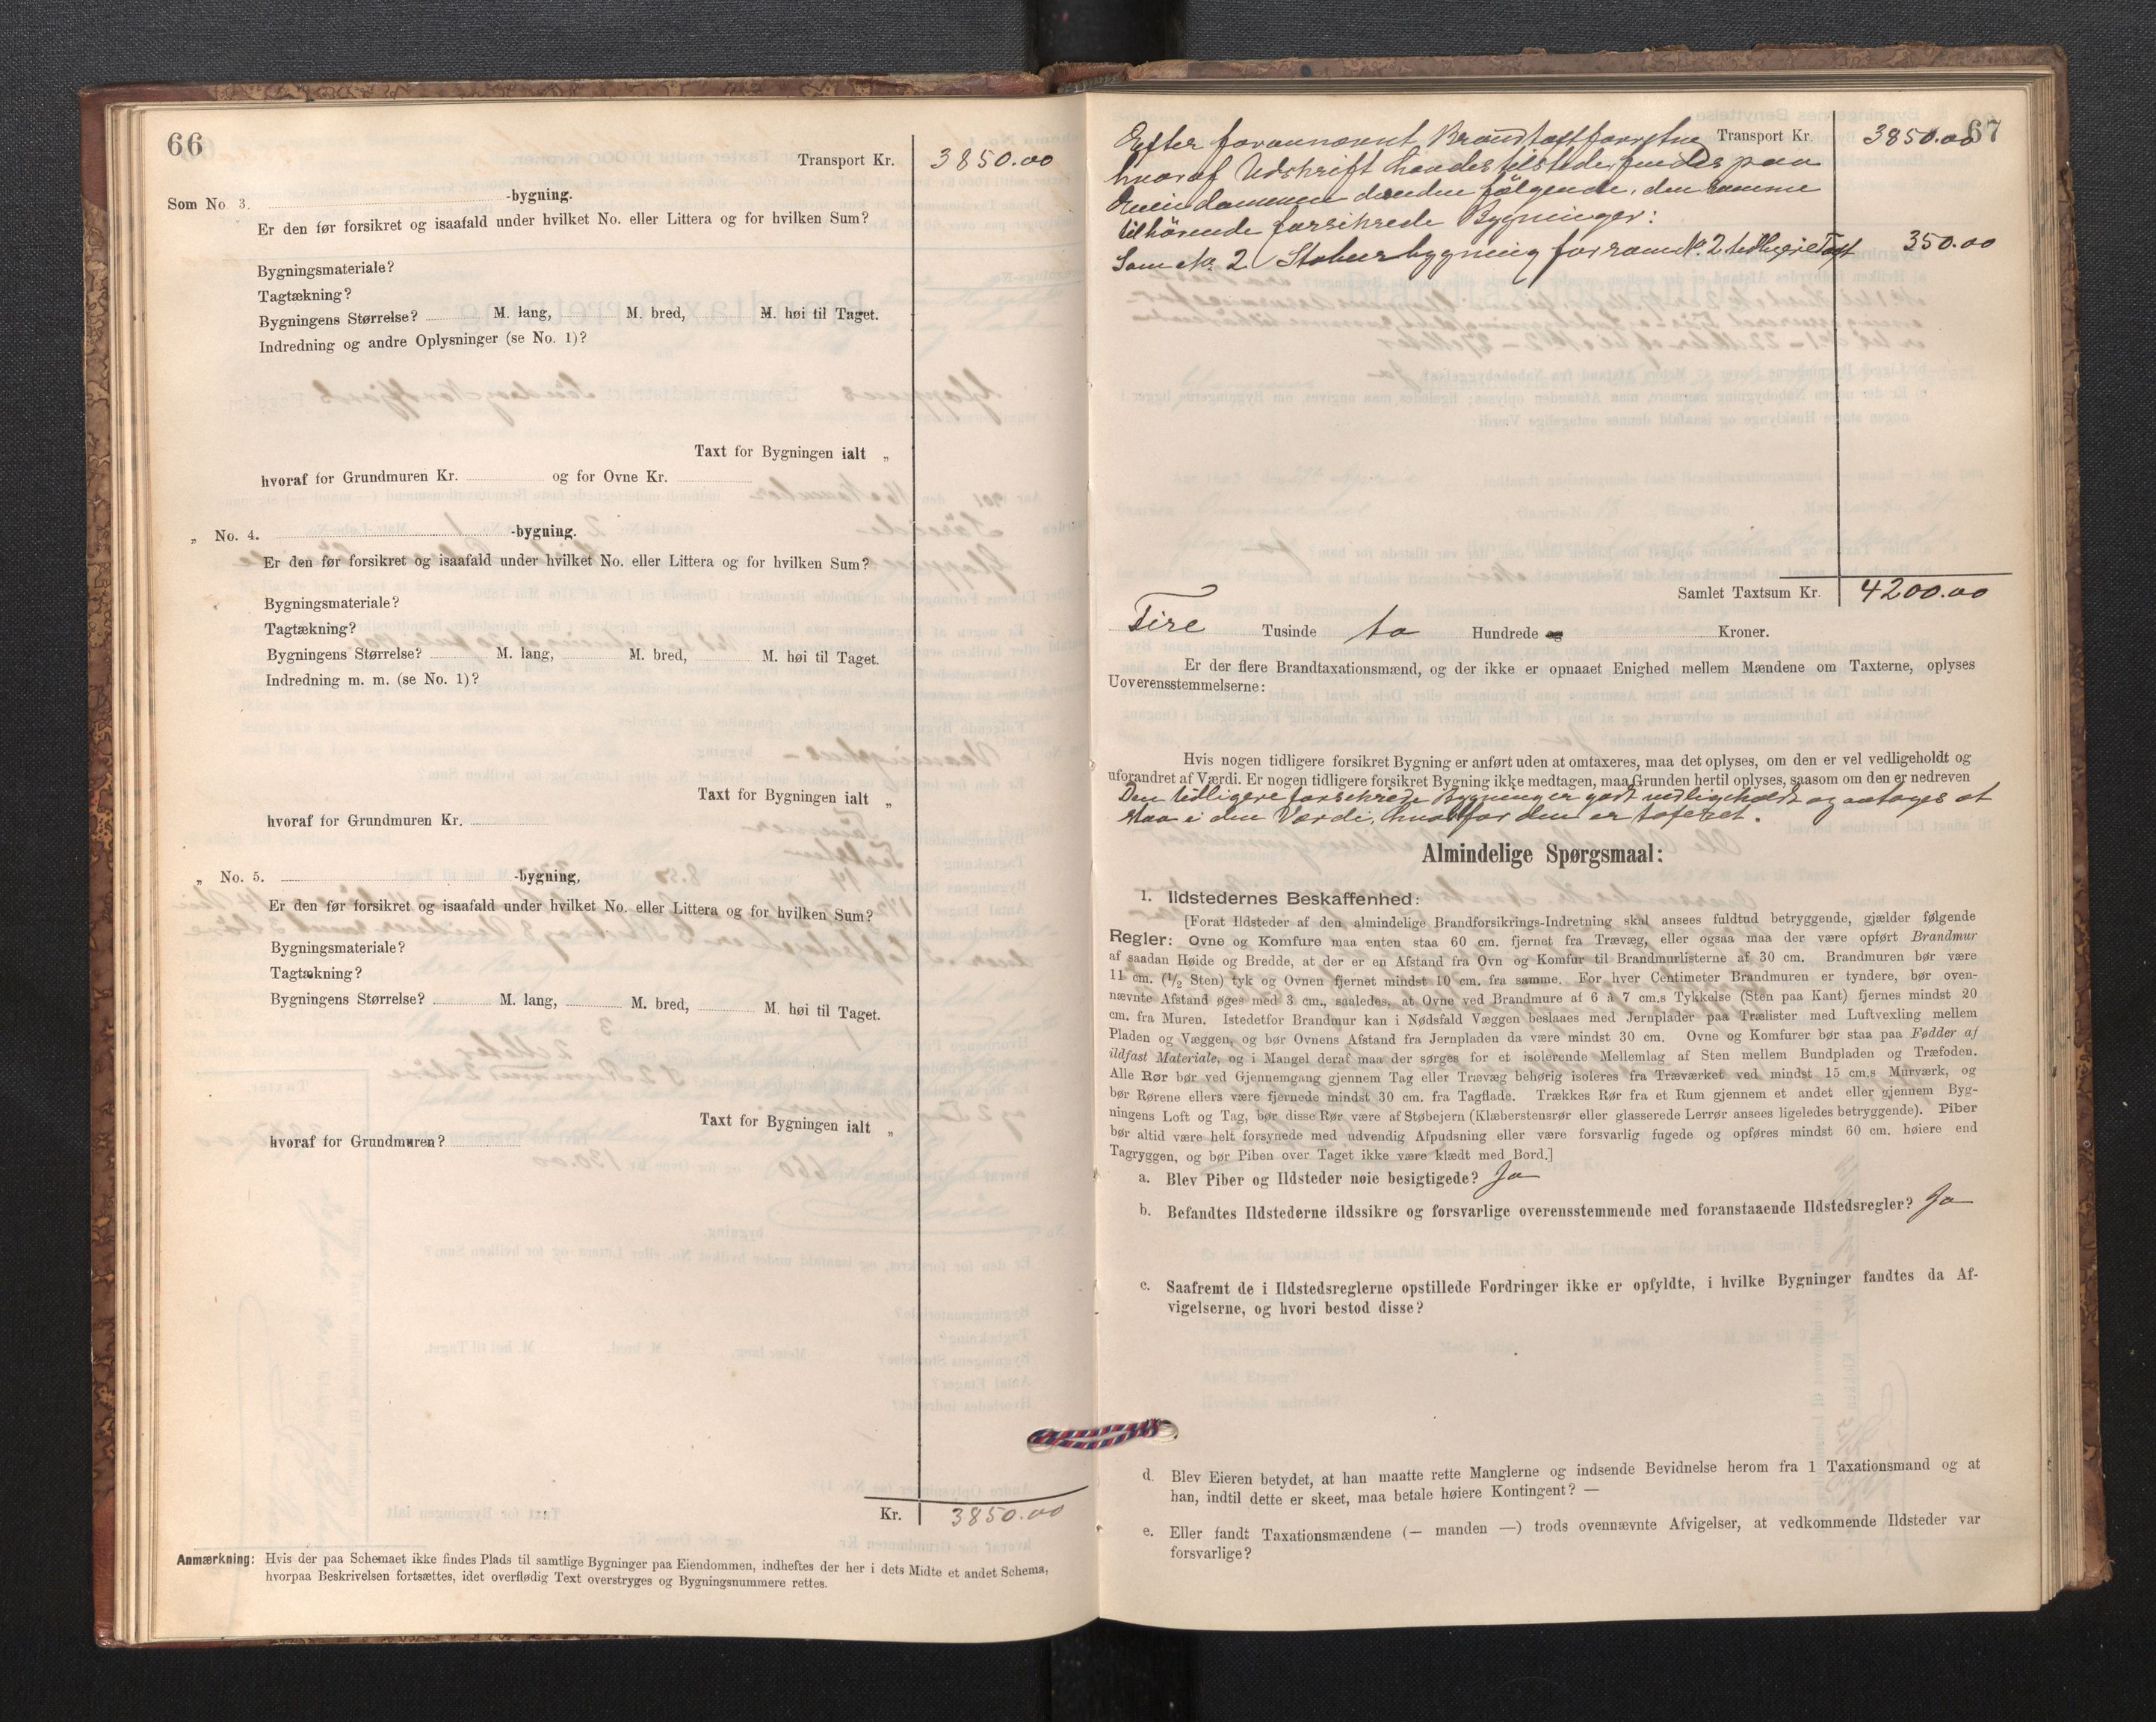 66
Transport Kr. 3850.00
Som No 3. -bygning.
Er den før forsikret og isaafald under hvilket No. eller Littera og for hvilken Sum?
Bygningsmateriale?
Tagtækning?
Bygningens Størrelse? M. lang, M. bred, M. høi til Taget.
Indredning og andre Oplysninger (se No. 1)?
Taxt for Bygningen ialt „
hvoraf for Grundmuren Kr. og for Ovne Kr.
„ No. 4. -bygning.
Er den før forsikret og isaafald under hvilket No. eller Littera og for hvilken Sum?
Bygningsmateriale?
Tagtækning?
Bygningens Størrelse? M. lang, M. bred, M. høi til Taget.
Indredning m. m. (se No. 1)?
Taxt for Bygningen ialt „
hvoraf for Grundmuren Kr.
„ No. 5. -bygning,
Er den før forsikret og isaafald under hvilket No. eller Littera og for hvilken Sum?
Bygningsmateriale?
Tagtækning?
Bygningens Størrelse? M. lang, M. bred, M. høi til Taget.
Taxt for Bygningen ialt „
hvoraf for Grundmuren?
Kr. 3850.00
Anmærkning: Hvis der paa Schemaet ikke findes Plads til samtlige Bygninger paa Eiendommen, indheftes der her i dets Midte et andet Schema,
hvorpaa Beskrivelsen fortsættes, idet overflødig Text overstryges og Bygningsnummere rettes.
67
Efter forannævnt Transport Kr. 3850.00
hvoraf Udskrift havdes tilstede, findes paa
Eiendommen desuden følgende, den samme
tilhørende forsikrede Bygninger:
Som No 2 Stabursbygning forsom No. 2 tidligere Taxt 350.00
Samlet Taxtsum Kr. 4200.00
Fire Tusinde to Hundrede og Kroner.
Er der flere Brandtaxationsmænd, og der ikke er opnaaet Enighed mellem Mændene om Taxterne, oplyses
Uoverensstemmelserne:
Hvis nogen tidligere forsikret Bygning er anført uden at omtaxeres, maa det oplyses, om den er vel vedligeholdt og
uforandret af Værdi. Er nogen tidligere forsikret Bygning ikke medtagen, maa Grunden hertil oplyses, saasom om den er nedreven
Den tidligere forsikrede Bygning er godt vedligeholdt og antages at
staa i den Værdi, hvorfor den er taxeret.
Almindelige Spørgsmaal:
1. Ildstedernes Beskaffenhed:
[Forat Ildsteder af den almindelige Brandforsikrings-Indretning skal ansees fuldtud betryggende, gjælder følgende
Regler: Ovne og Komfure maa enten staa 60 cm. fjernet fra Trævæg, eller ogsaa maa der være opført Brandmur
af saadan Høide og Bredde, at der er en Afstand fra Ovn og Komfur til Brandmurlisterne af 30 cm. Brandmuren bør være
11 cm. (1/2 Sten) tyk og Ovnen fjernet mindst 10 cm. fra samme. For hver Centimeter Brandmuren er tyndere, bør oven-
nævnte Afstand øges med 3 cm., saaledes, at Ovne ved Brandmure af 6 à 7 cm.s Tykkelse (Sten paa Kant) fjernes mindst 20
cm. fra Muren. Istedetfor Brandmur kan i Nødsfald Væggen beslaaes med Jernplader paa Trælister med Luftvexling mellem
Pladen og Væggen, og bør Ovnens Afstand fra Jernpladen da være mindst 30 cm. Ovne og Komfurer bør staa paa Fødder af
ildfast Materiale, og i Mangel deraf maa der sørges for et isolerende Mellemlag af Sten mellem Bundpladen og Træfoden.
Alle Rør bør ved Gjennemgang gjennem Tag eller Trævæg behørig isoleres fra Træværket ved mindst 15 cm.s Murværk, og
bør Rørene ellers være fjernede mindst 30 cm. fra Tagflade. Trækkes Rør fra et Rum gjennem et andet eller gjennem Byg-
ningens Loft og Tag, bør disse Rør være af Støbejern (Klæberstensrør eller glasserede Lerrør ansees ligeledes betryggende). Piber
bør altid være helt forsynede med udvendig Afpudsning eller være forsvarlig fugede og opføres mindst 60 cm. høiere end
Tagryggen, og bør Piben over Taget ikke være klædt med Bord.]
a. Blev Piber og Ildsteder nøie besigtigede? Ja
b. Befandtes Ildstederne ildssikre og forsvarlige overensstemmende med foranstaaende Ildstedsregler? Ja
c. Saafremt de i Ildstedsreglerne opstillede Fordringer ikke er opfyldte, i hvilke Bygninger fandtes da Af-
vigelserne, og hvori bestod disse?
d. Blev Eieren betydet, at han maatte rette Manglerne og indsende Bevidnelse herom fra 1 Taxationsmand og at
han, indtil dette er skeet, maa betale høiere Kontingent? —
e. Eller fandt Taxationsmændene (— manden —) trods ovennævnte Afvigelser, at vedkommende Ildsteder var
forsvarlige?